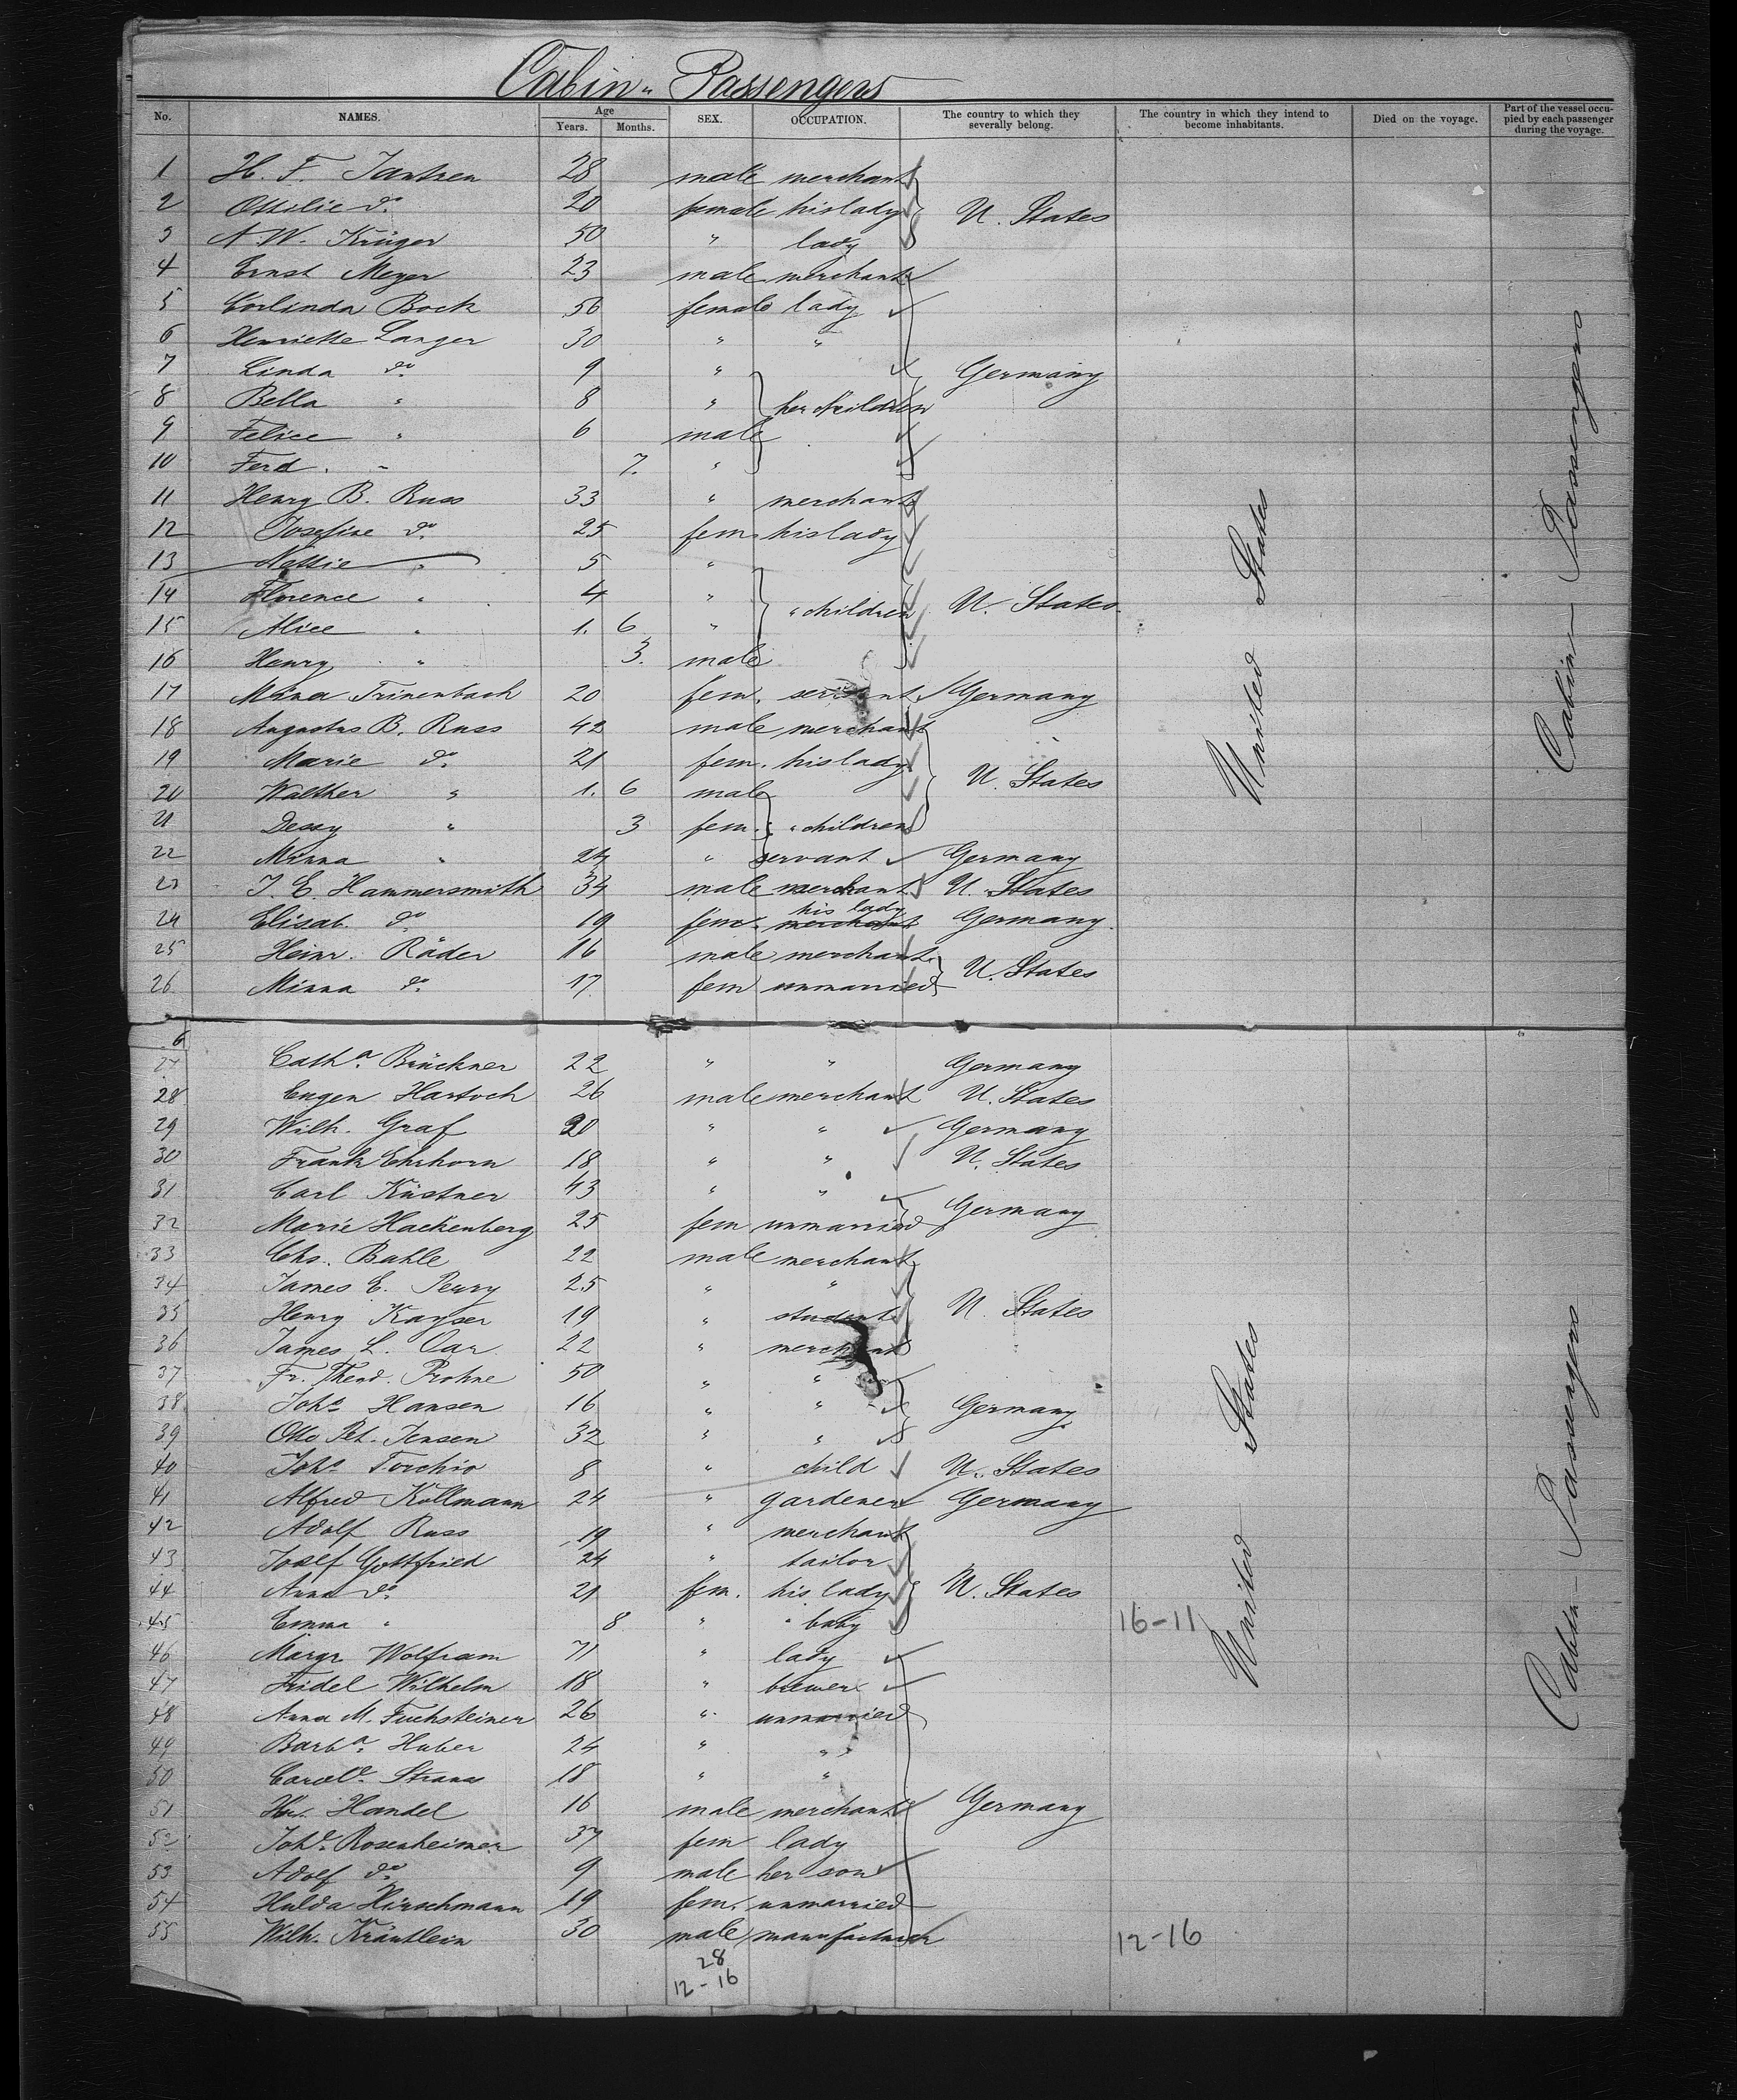 Cabin-Passengers
No. NAMES. Age Years. Months. SEX. OCCUPATION. The country to which they severally belong. The country in which they intend to become inhabitants. Died on the voyage. Part of the vessel occupied by each passenger during the voyage.
1 H. F. Jantzen 28 male merchant
2 Ottilie do. 20 female his lady U. States
3 A. W. Krüger 50 " lady
4 Ernst Meyer 23 male merchant
5 Corlinda Bock 56 female lady
6 Henriette Langer 30 " "
7 Linda do. 9 " Germany
8 Bella " 8 " her children
9 Felice " 6 male
10 Ferd. " 7. "
11 Henry B. Russ 33 " merchant
12 Josefine do. 25 fem his lady
13 Nettie " 5 "
14 Florence " 4 " " children U. States
15 Alice " 1. 6 "
16 Henry " 3. male
17 Mina Trinenbach 20 fem. servant Germany
18 Augustus B. Russ 42 male merchant
19 Marie do. 21 fem. his lady U. States
20 Walther " 1. 6 male
21 Dessy " 3 fem. " children
22 Minna " 24 " servant Germany
23 J. E. Hammersmith 34 male merchant U. States
24 Elisab. do. 19 fem. merchant his lady Germany
25 Heinr. Räder 16 male merchant U. States
26 Minna do. 17. fem unmarried
United States
Cabin-Passengers
6
27 Cath.a Brückner 22 " " Germany
28 Eugen Hartoch 26 male merchant U. States
29 Wilh. Graf 20 " " Germany
30 Frank Ehrhorn 18 " " U. States
31 Carl Küstner 43 " " Germany
32 Marie Hackenberg 25 fem unmarried
33 Chs. Bahle 22 male merchant
34 James E. Perry 25 " "
35 Henry Kayser 19 " student U. States
36 James L. Oar 22 " merchant
37 Fr. Theod. Prohne 50 " "
38 Joh.s Hansen 16 " " Germany
39 Otto Pet. Jensen 32 " "
40 Joh.s 8 " child U. States
41 Alfred Kollmann 24 " gardener Germany
42 Adolf Russ 19 " merchant
43 Josef Gottfried 24 " tailor
44 Anna do. 21 fem. his lady U. States
45 Emma " 8 " " baby 16-11
46 Margr Wolfram 71 " lady
47 Fridel Wilhelm 18 " brewer
48 Anna M. Fuchsteiner 26 " unmarried
49 Barb.a Huber 24 " "
50 Strauss 18 " "
51 Handel 16 male merchant Germany
52 Joh.e Rosenheimer 37 fem lady
53 Adolf do. 9 male her son
54 Hulda Hirschmann 19 fem. unmarried
55 Wilh. Kräutlein 30 male manufacturer 12-16
28
12-16
United States
Cabin-Passengers